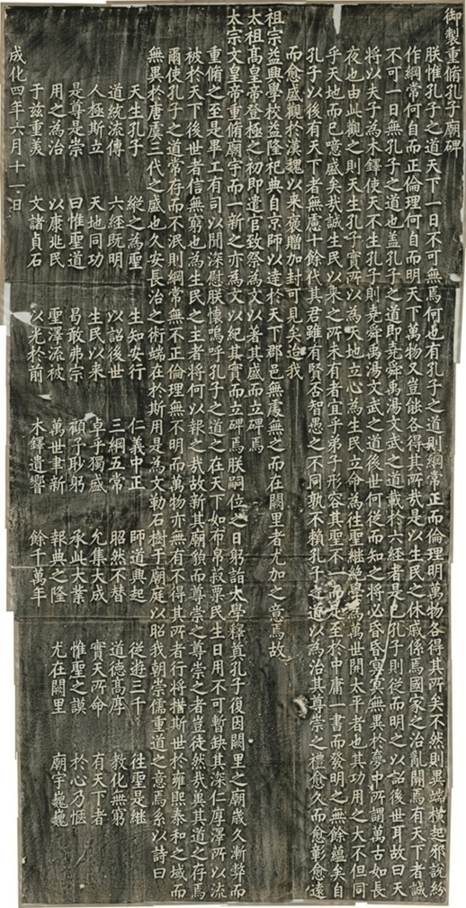 御製重脩孔子廟碑
朕惟孔子之道天下一日不可無焉何也有孔子之道則綱常正而倫理明萬物各得其所矣不然則異端橫起邪說紛
作綱常何自而正倫理何自而明天下萬物又豈能各得其所哉是以生民之休戚係焉國家之治亂關焉有天下者誠
不可一日無孔子之道也蓋孔子之道即堯舜禹湯文武之道載於六經者是已孔子則從而明之以詔後世耳故曰天
將以夫子為木鐸使天不生孔子則堯舜禹湯文武之道後世何從而知之將必昏昏冥冥無異於夢中所謂萬古如長
夜也由此觀之則天生孔子實所以為天地立心為生民立命為往聖繼絕學為萬世開太平者也其功用之大不但同
乎天地而已噫盛矣哉誠生民以來之所未有者宜乎弟子形容其聖不一而足至於中庸一書而發明之無餘蘊矣自
孔子以後有天下者無慮十餘代其君雖有賢否智愚之不同孰不賴孔子之道以為治其尊崇之禮愈久而愈彰愈遠
而愈盛觀於漢魏以來褒贈加封可見矣迨我
祖宗益興學校益隆祀典自京師以達於天下郡邑無處無之而在闕里者尤加之意焉故
太祖高皇帝登極之初即遣官致祭為文以著其盛而立碑焉
太宗文皇帝重脩廟宇而一新之亦為文以紀其實而立碑焉朕嗣位之日躬詣太學釋奠孔子復因闕里之廟歲久漸弊而
重脩之至是畢工有司以聞深慰朕懷嗚呼孔子之道之在天下如布帛菽粟民生日用不可暫缺其深仁厚澤所以流
被於天下後世者信無窮也為生民之主者將何以報之哉故新其廟貌而尊崇之尊崇之者豈徒然哉冀其道之存焉
爾使孔子之道常存而不泯則綱常無不正倫理無不明而萬物亦無有不得其所者行將措斯世於雍熙泰和之域而
無異於唐虞三代之盛也久安長治之術端在於斯用是為文勒石樹于廟庭以昭我朝崇儒重道之意焉系以詩曰
天生孔子 縱之為聖 生知安行 仁義中正 師道興起 從遊三千 往聖是繼
道統流傳 六經既明 以詔後世 三綱五常 昭然不替 道德高厚 教化無窮
人極斯立 天地同功 生民以來 卓乎獨盛 允集大成 實天所命 有天下者
是尊是崇 曰惟聖道 曷敢弗宗 顧予眇躬 承此大業 惟聖之謨 於心乃愜
用之為治 以康兆民 聖澤流被 萬世聿新 報典之隆 尤在闕里 廟宇巍巍
于茲重美 文諸貞石 以光於前 木鐸遺響 餘千萬年
成化四年六月十一日